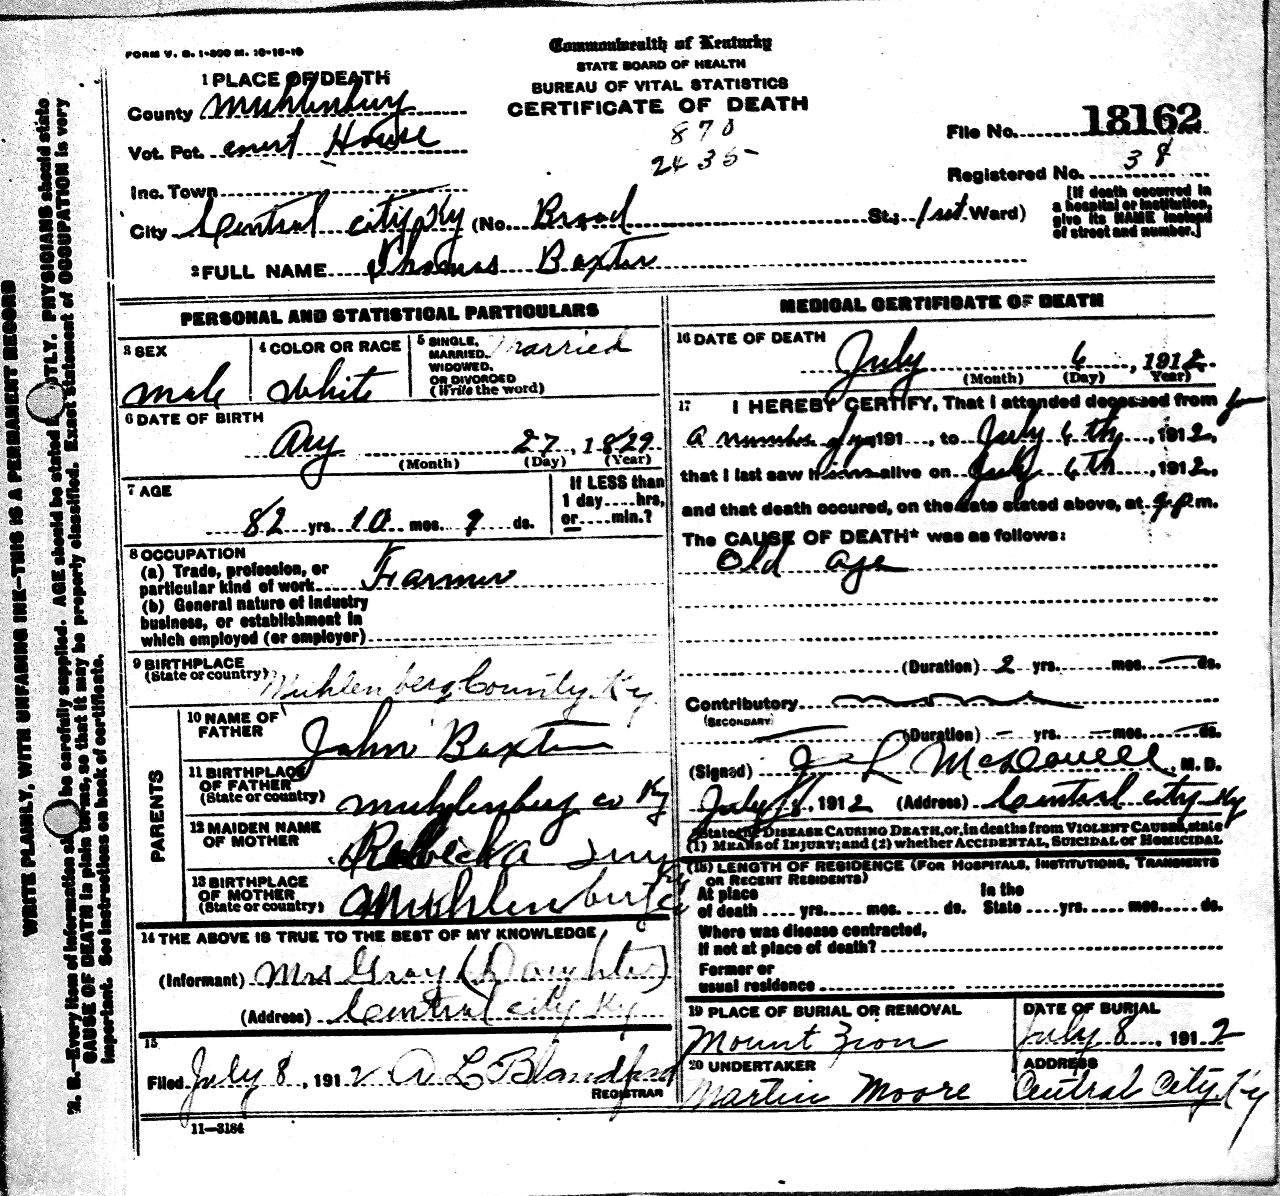 FORM V. S. 1-200 M. 10-16-10
Commonwealth of Kentucky
STATE BOARD OF HEALTH
BUREAU OF VITAL STATISTICS
CERTIFICATE OF DEATH
870
2435
1 PLACE OF DEATH
County Muhlenburg
Vot. Pct. Court House
Inc. Town
City Central city Ky (No. Broad St.; 1st Ward)
File No. 18162
Registered No. 38
[If death occurred in
a hospital or institution,
give its NAME instead
of street and number.]
2 FULL NAME Thomas Baxter
PERSONAL AND STATISTICAL PARTICULARS
3 SEX
male
4 COLOR OR RACE
White
5 SINGLE,
MARRIED,
WIDOWED,
OR DIVORCED
(Write the word)
Married
6 DATE OF BIRTH
Aug 27, 1829
(Month) (Day) (Year)
7 AGE
82 yrs. 10 mos. 9 ds.
If LESS than
1 day....hrs,
or....min.?
8 OCCUPATION
(a) Trade, profession, or
particular kind of work Farmer
(b) General nature of industry
business, or establishment in
which employed (or employer)
9 BIRTHPLACE
(State or country) Muhlenberg County Ky
PARENTS
10 NAME OF
FATHER John Baxter
11 BIRTHPLACE
OF FATHER
(State or country) Muhlenburg co Ky
12 MAIDEN NAME
OF MOTHER Rebecka
13 BIRTHPLACE
OF MOTHER
(State or country) Muhlenburg
14 THE ABOVE IS TRUE TO THE BEST OF MY KNOWLEDGE
(Informant) Mrs Gray (Daughter)
(Address) Central city Ky
15
Filed July 8, 1912 A L Blandford
REGISTRAR
11-3184
MEDICAL CERTIFICATE OF DEATH
16 DATE OF DEATH
July 6, 1912
(Month) (Day) Year)
17 I HEREBY CERTIFY, That I attended deceased from for
a number of yrs 191 , to July 6th, 1912,
that I last saw him alive on July 6th, 1912,
and that death occured, on the date stated above, at 9 p.m.
The CAUSE OF DEATH* was as follows:
Old age
(Duration) 2 yrs. mos. ds.
Contributory
(SECONDARY)
(Duration) yrs. mos. ds.
(Signed) J L McDowell, M. D.
July 8, 1912 (Address) Central city Ky
*State the DISEASE CAUSING DEATH, or, in deaths from VIOLENT CAUSES, state
(1) MEANS of INJURY; and (2) whether ACCIDENTAL, SUICIDAL or HOMICIDAL
(18) LENGTH OF RESIDENCE (FOR HOSPITALS, INSTITUTIONS, TRANSIENTS
OR RECENT RESIDENTS)
At place
of death .... yrs. mos. ds.
In the
State .... yrs. mos. ds.
Where was disease contracted,
if not at place of death?
Former or
usual residence
19 PLACE OF BURIAL OR REMOVAL
Mount Zion
DATE OF BURIAL
July 8, 1912
20 UNDERTAKER
Martin Moore
ADDRESS
Central City, Ky
WRITE PLAINLY, WITH UNFADING INK—THIS IS A PERMANENT RECORD
N. B.—Every item of information should be carefully supplied. AGE should be stated EXACTLY. PHYSICIANS should state
CAUSE OF DEATH in plain terms, so that it may be properly classified. Exact statement of OCCUPATION is very
important. See instructions on back of certificate.